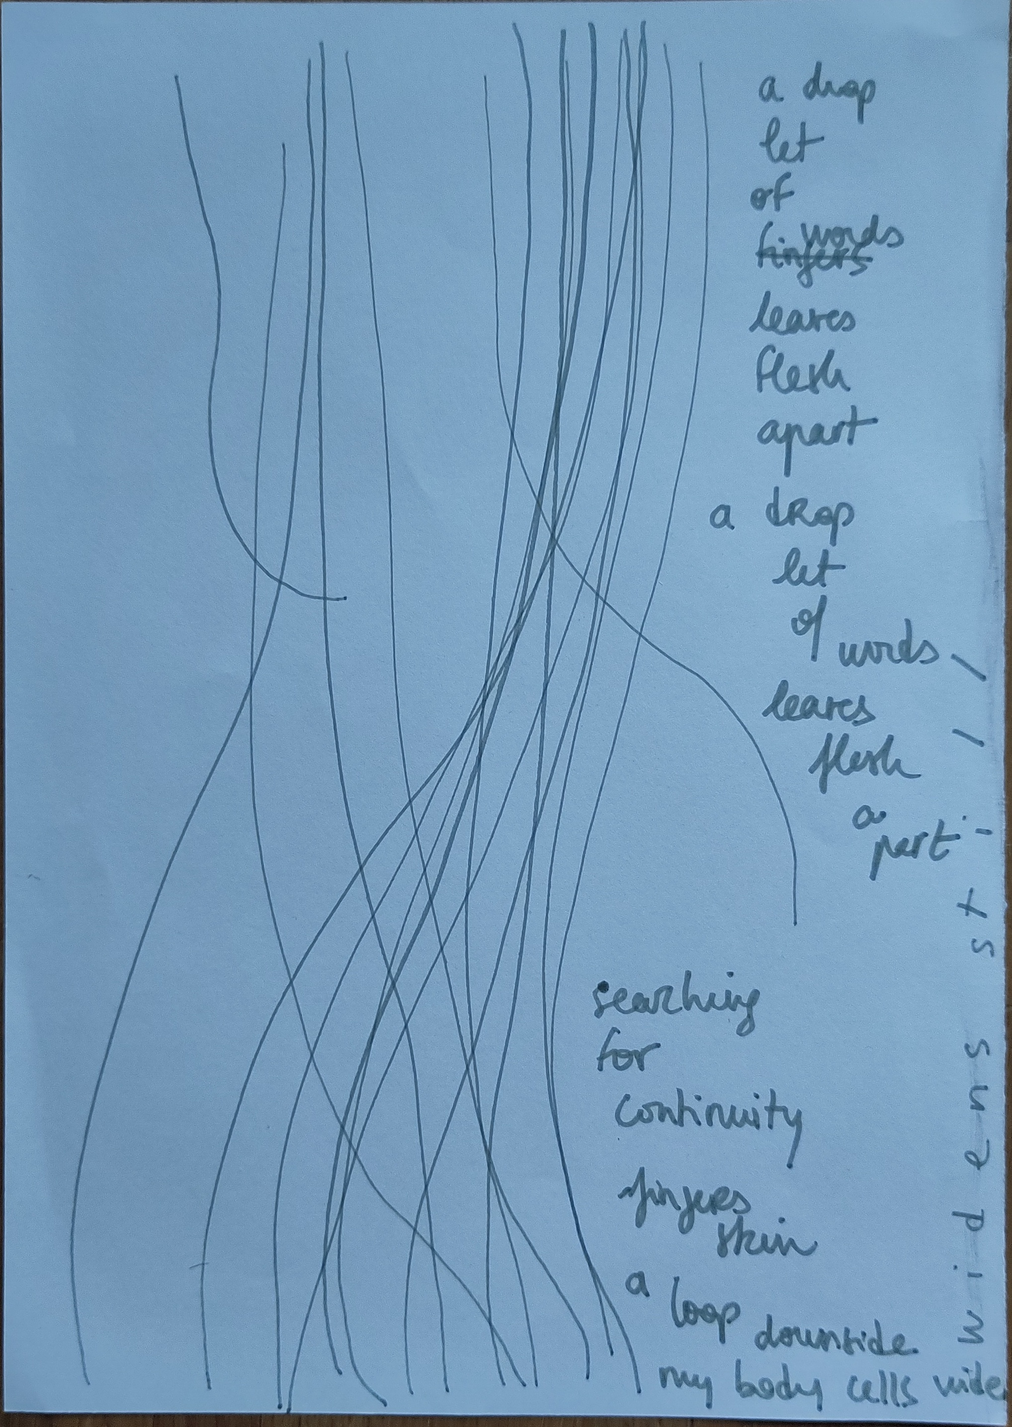 a drop
let
of
fingers words
leaves
flesh
apart
a dRop
let
of
words
leaves
flesh
a
part
searching
for
continuity
fingeRs
skin
a
loop
downside
my body cells wide
widens still